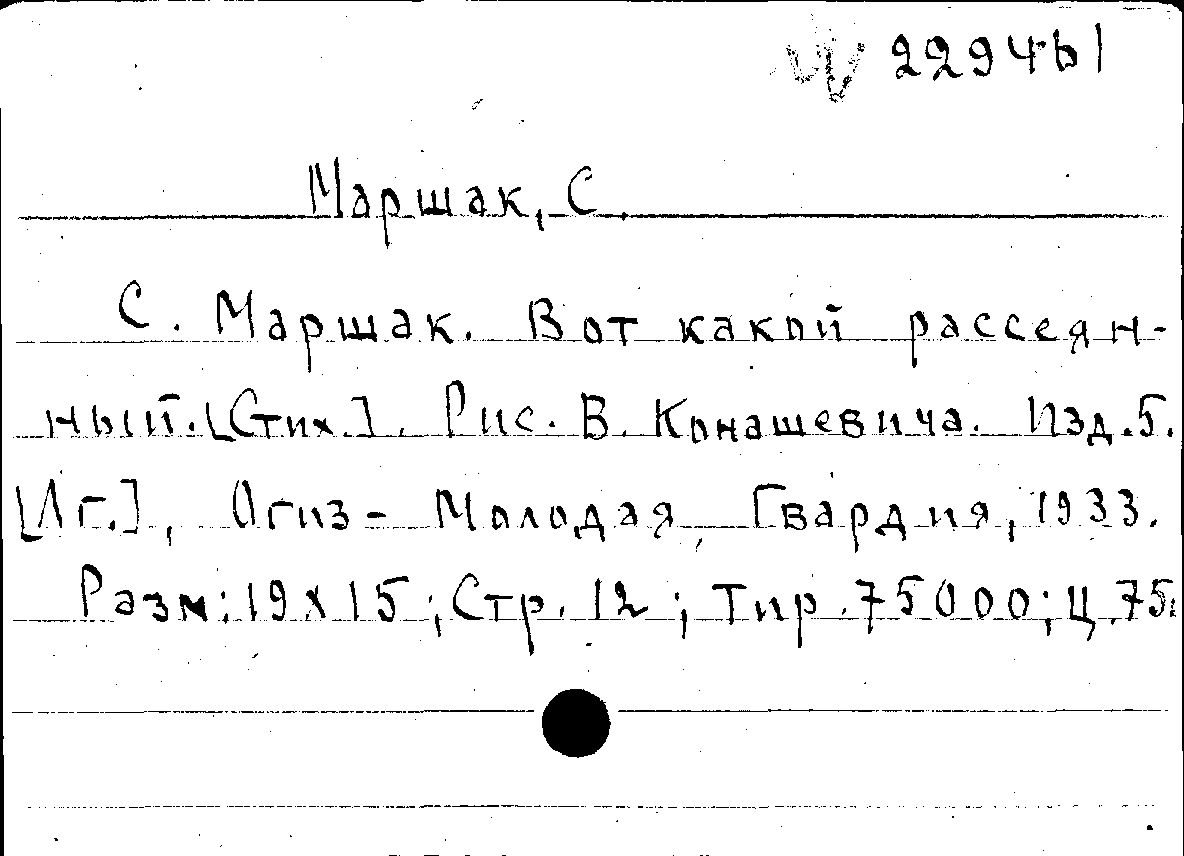 W 229461
Маршак, С.
С. Маршак. Вот какой рассеян-
ный. [Стих.]. Рис. В. Конашевича. Изд. 5.
[Лг.], Огиз - Молодая Гвардия, 1933.
Разм: 19х15; Стр. 12; Тир. 75000; Ц. 75